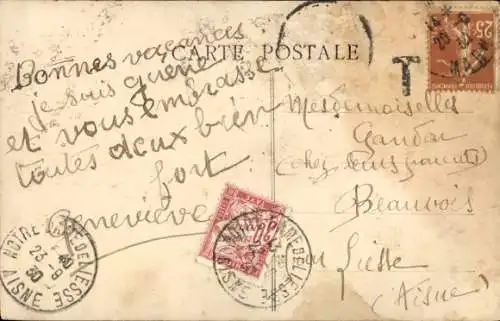 CARTE POSTALE
Bonnes vacances
je suis guerie
et vous embrasse
toutes deux bien
fort
Geneviève
T
25
MARNE
Mesdemoiselles
Gandon
(chez leurs parents)
Beauvois
par Liesse
(Aisne)
NOTRE-DAME DE LIESSE
23-9
30
AISNE
NOTRE-DAME DE LIESSE
AISNE